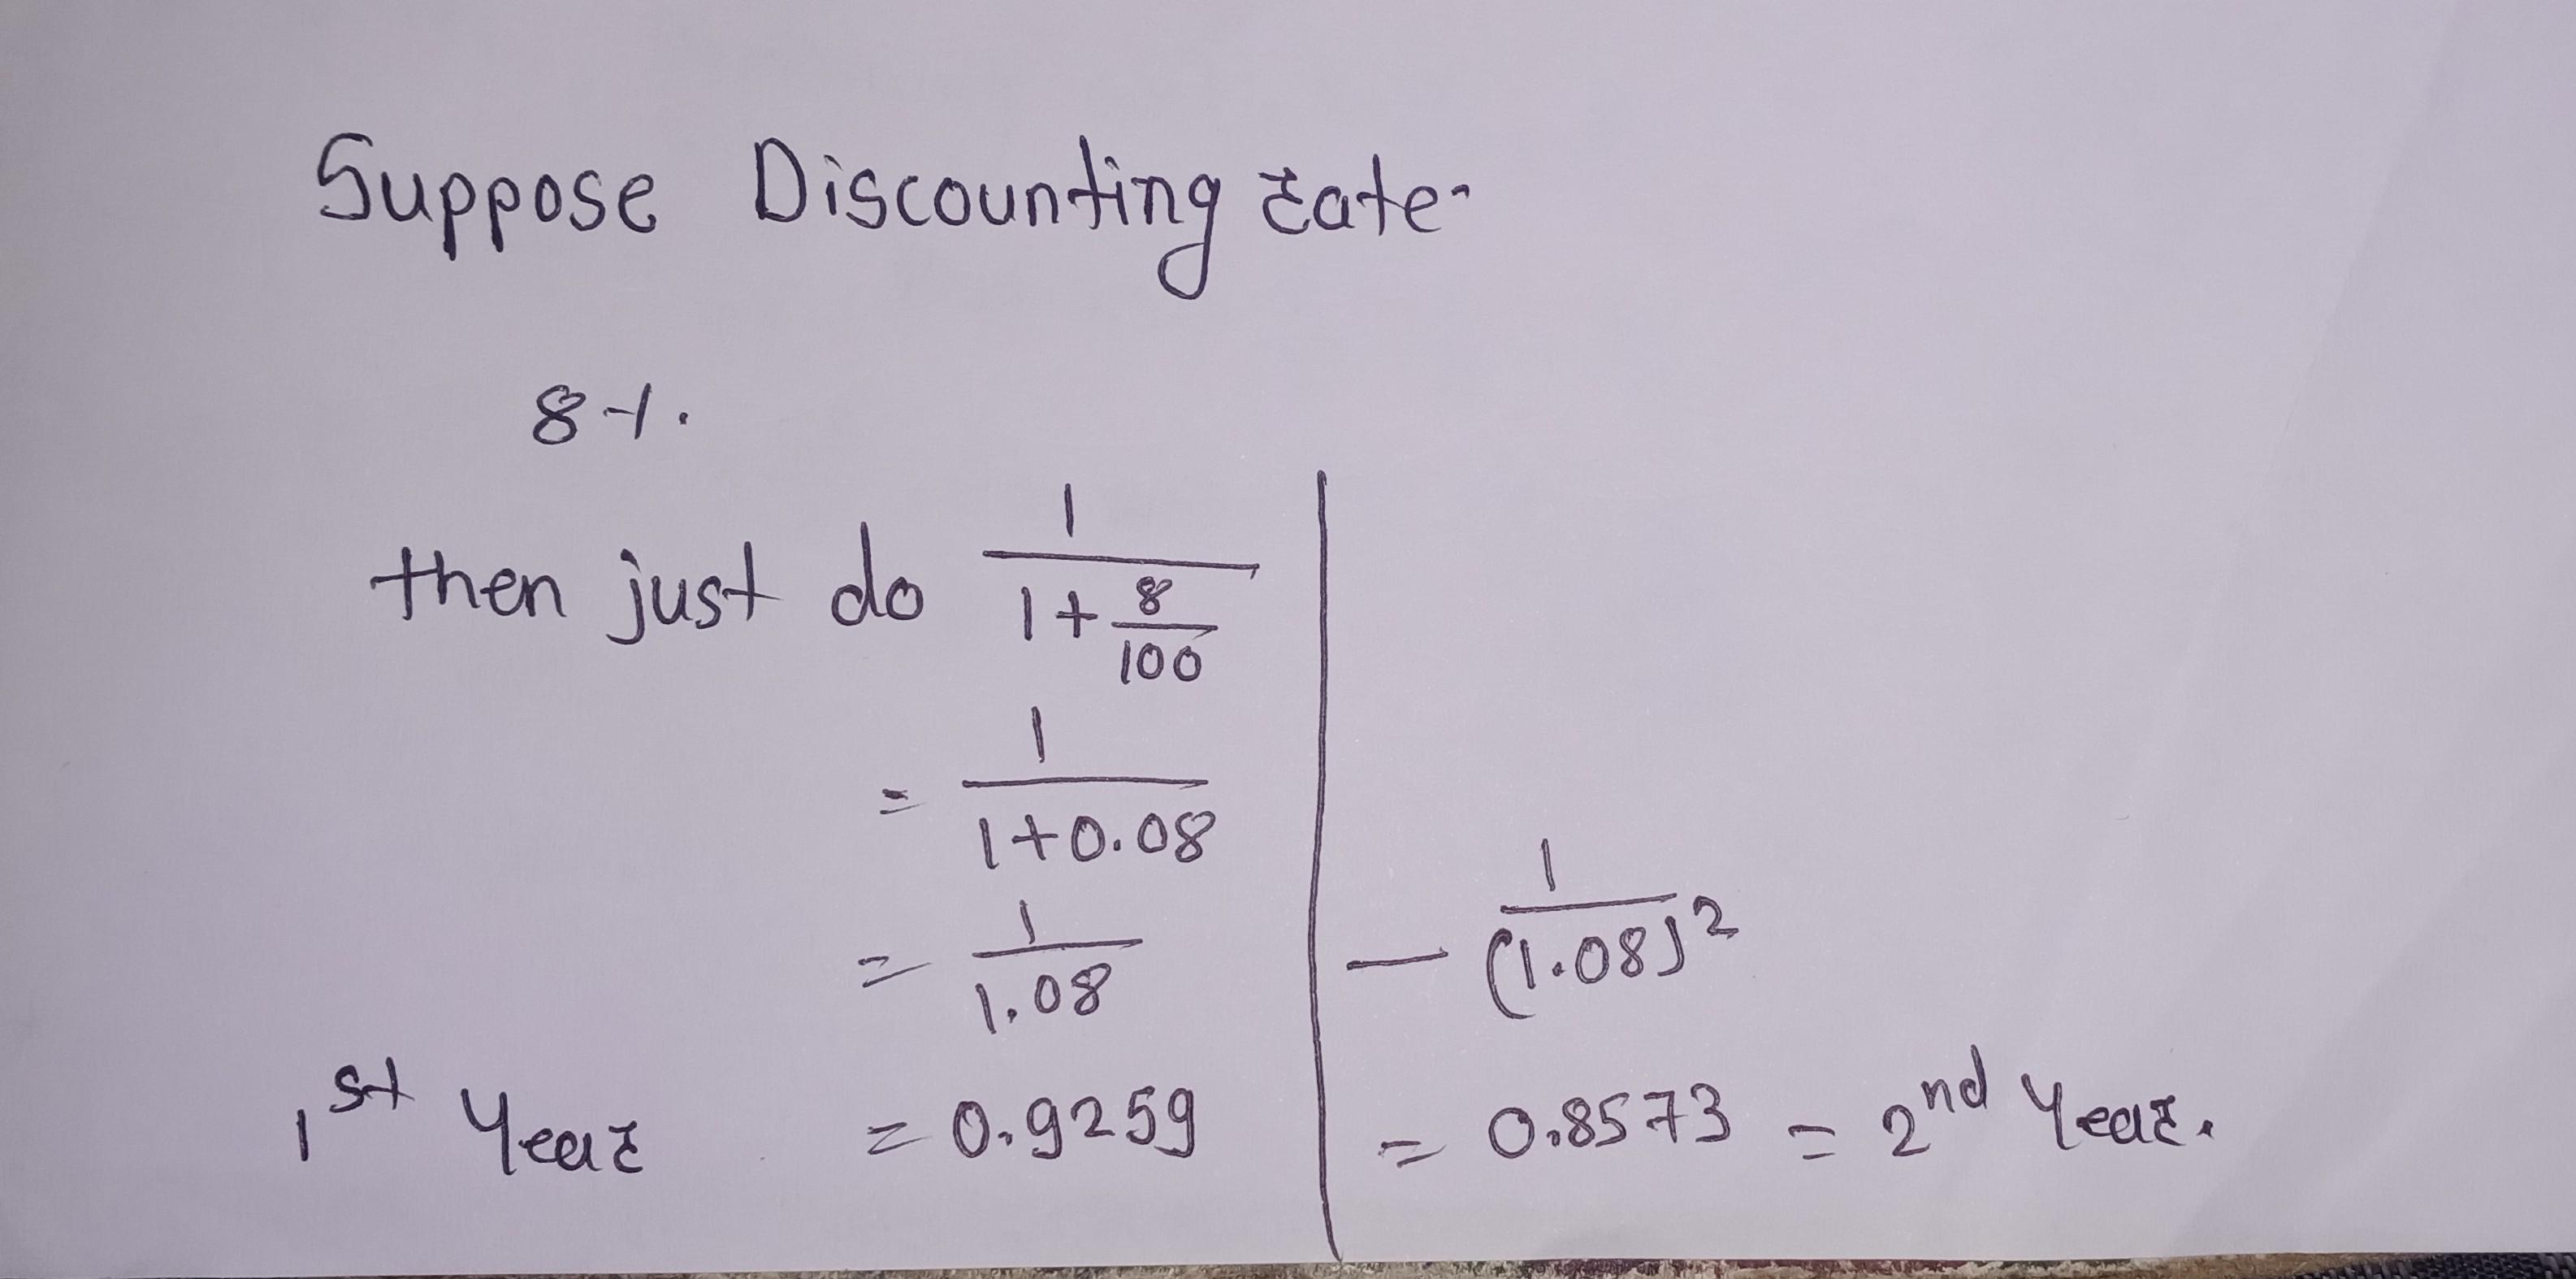 Suppose Discounting rate-
8%.
then just do 1 / (1 + 8/100)
= 1 / (1+0.08)
= 1 / 1.08
1st Year = 0.9259
— 1 / (1.08)²
= 0.8573 = 2nd Year.